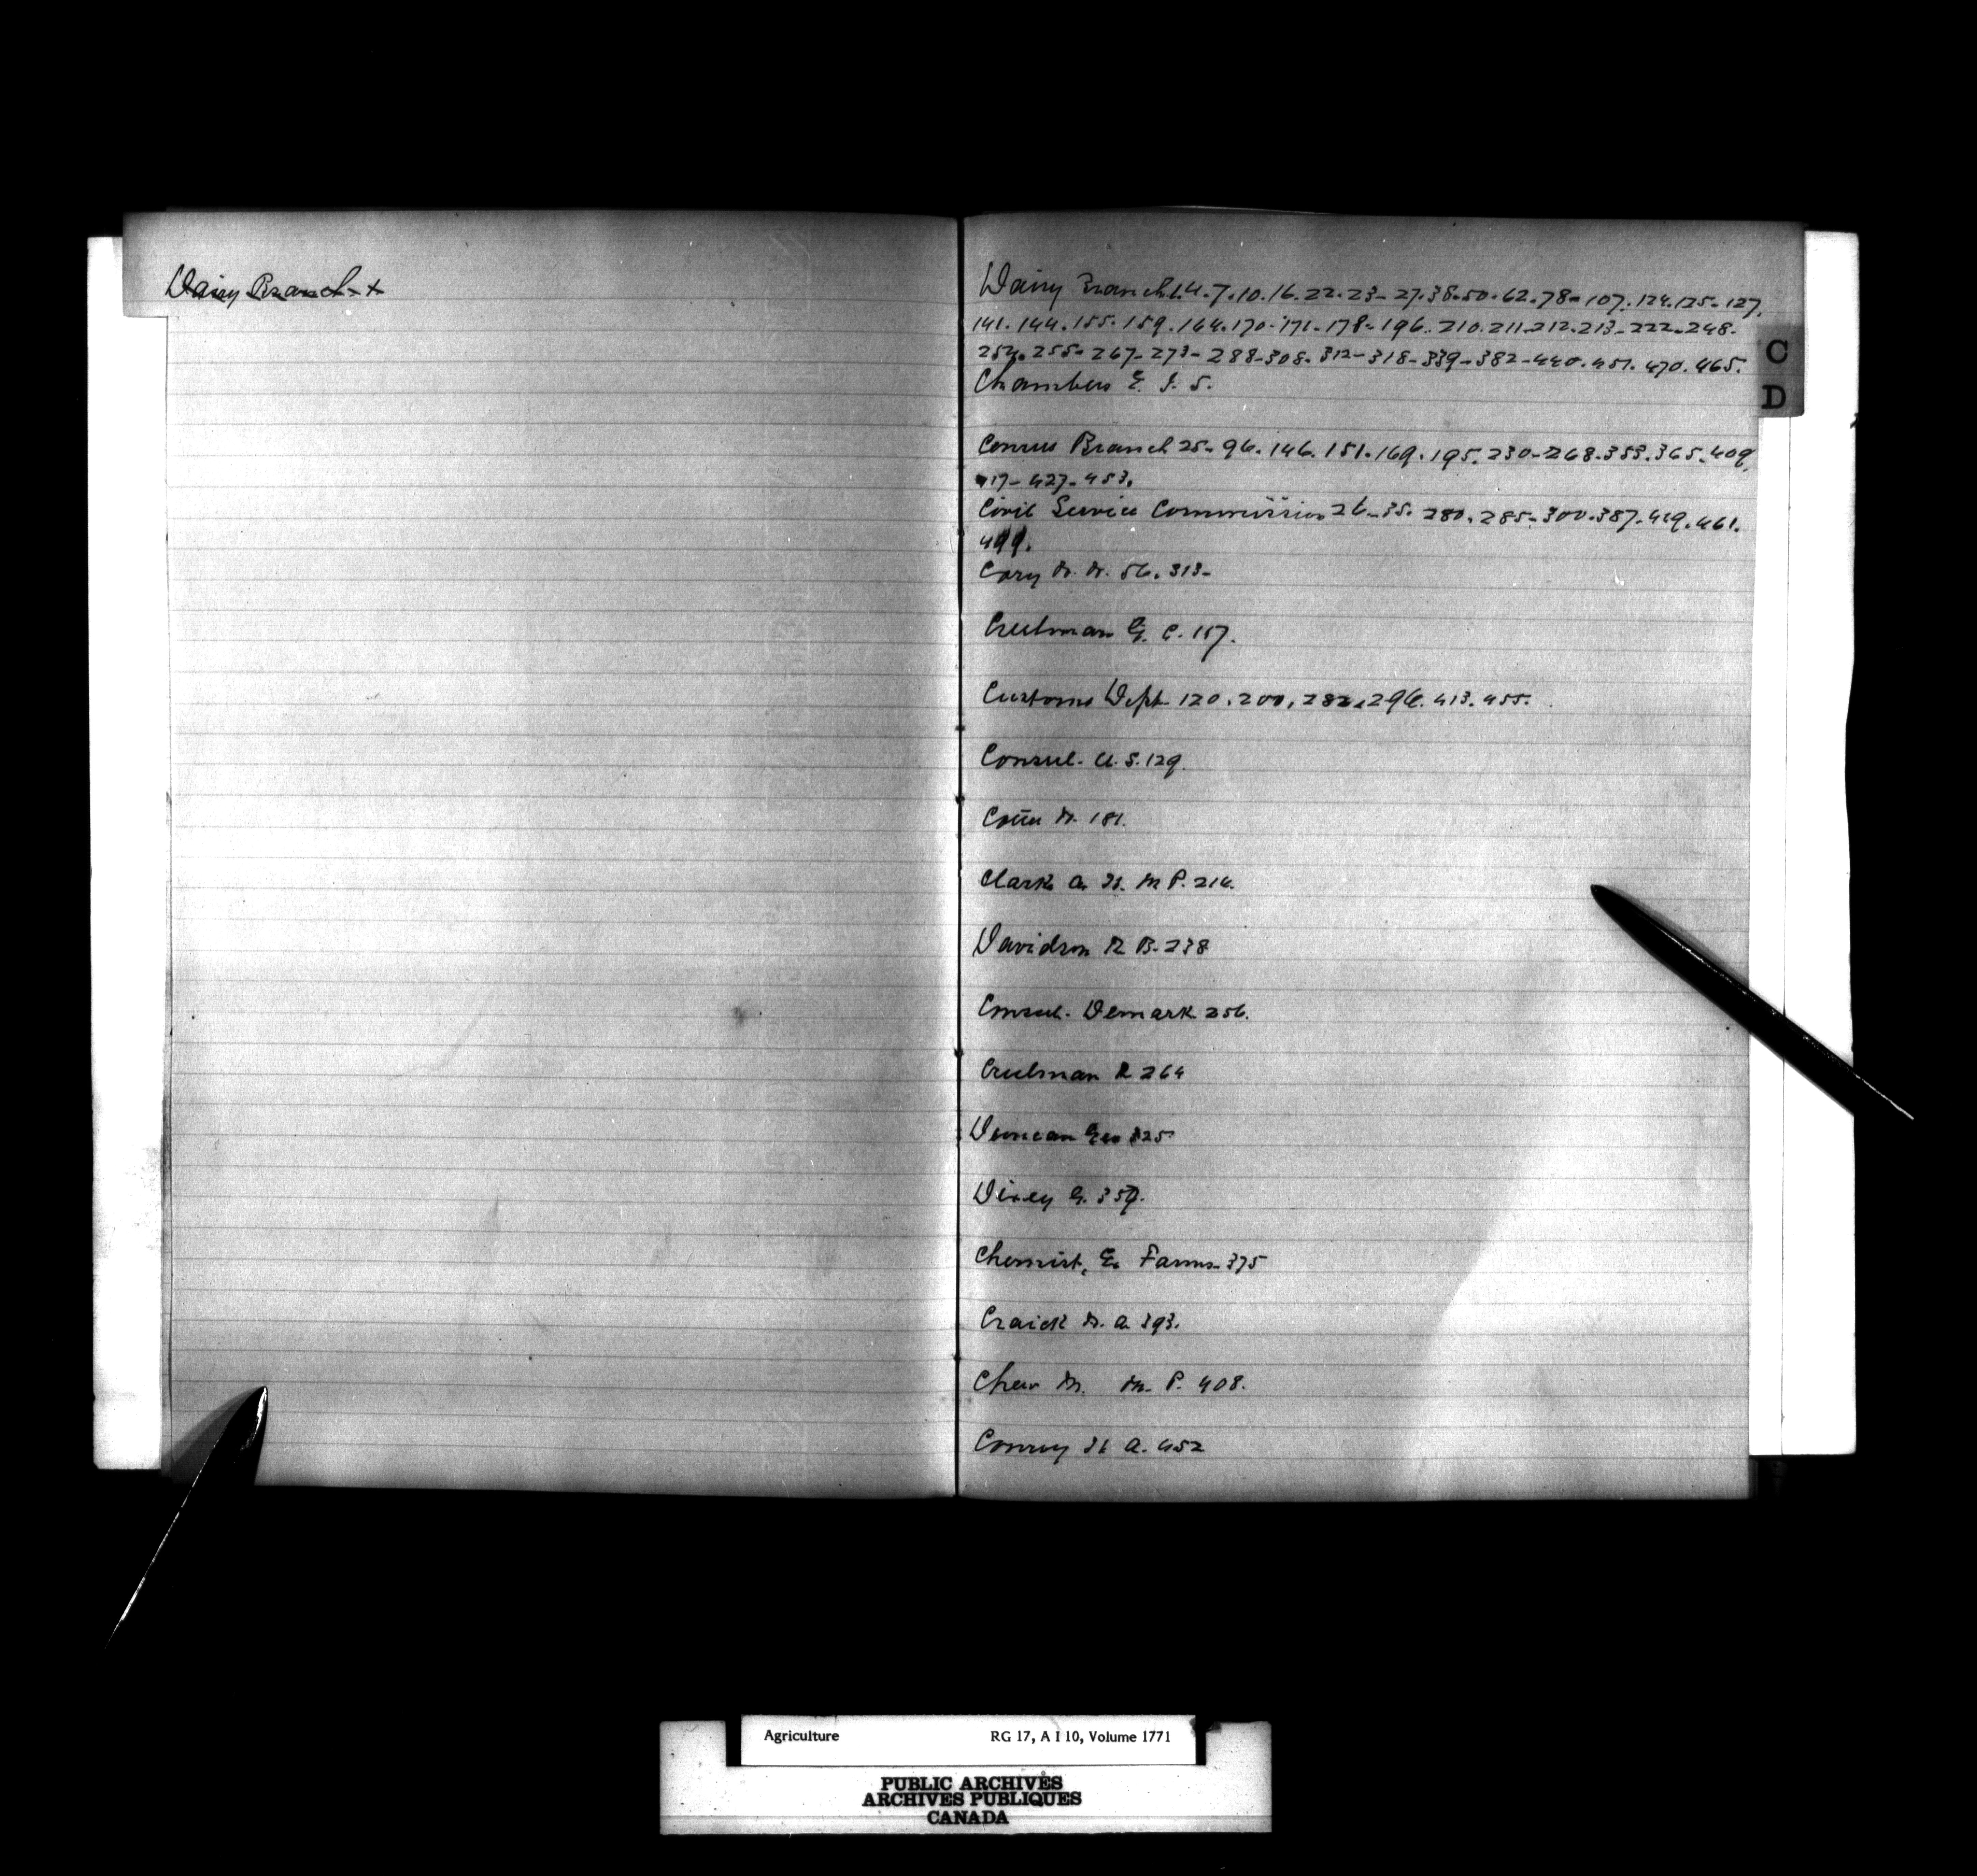 Dairy Branch x
Dairy Branch 1.4.7.10.16.22.23-27.38.50.62.78-107.124.125-127.
141.144.155.159.164.170-171-178-196.210.211.212.213-222-248-
254.255-267-273-288-308.312-318-339-382-440.451.470.465.
Chambers E. J. S.
Census Branch 25-96.146.151.169.195.230-268.353.365.409,
417-427-453.
Civil Service Commission 26-35.280.285-300.387.419.461.
499.
Cory 56.313-
Creelman G. C. 157.
Customs Dept 120.200.282.296.413.455.
Consul- U.S. 129.
181.
Clark A. H. M P. 216.
Davidson R B. 238
Consul- Demark 256.
Creelman R 264
Duncan Geo 325
Dixey G. 359.
Chemist, Ex Farms-375
Craick 393.
Chew M. M. P. 408.
Conroy H A. 452
C
D
Agriculture RG 17, A I 10, Volume 1771
PUBLIC ARCHIVES
ARCHIVES PUBLIQUES
CANADA